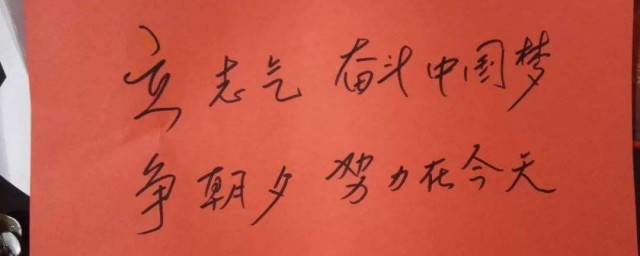 立志气 奋斗中国梦
争朝夕 努力在今天